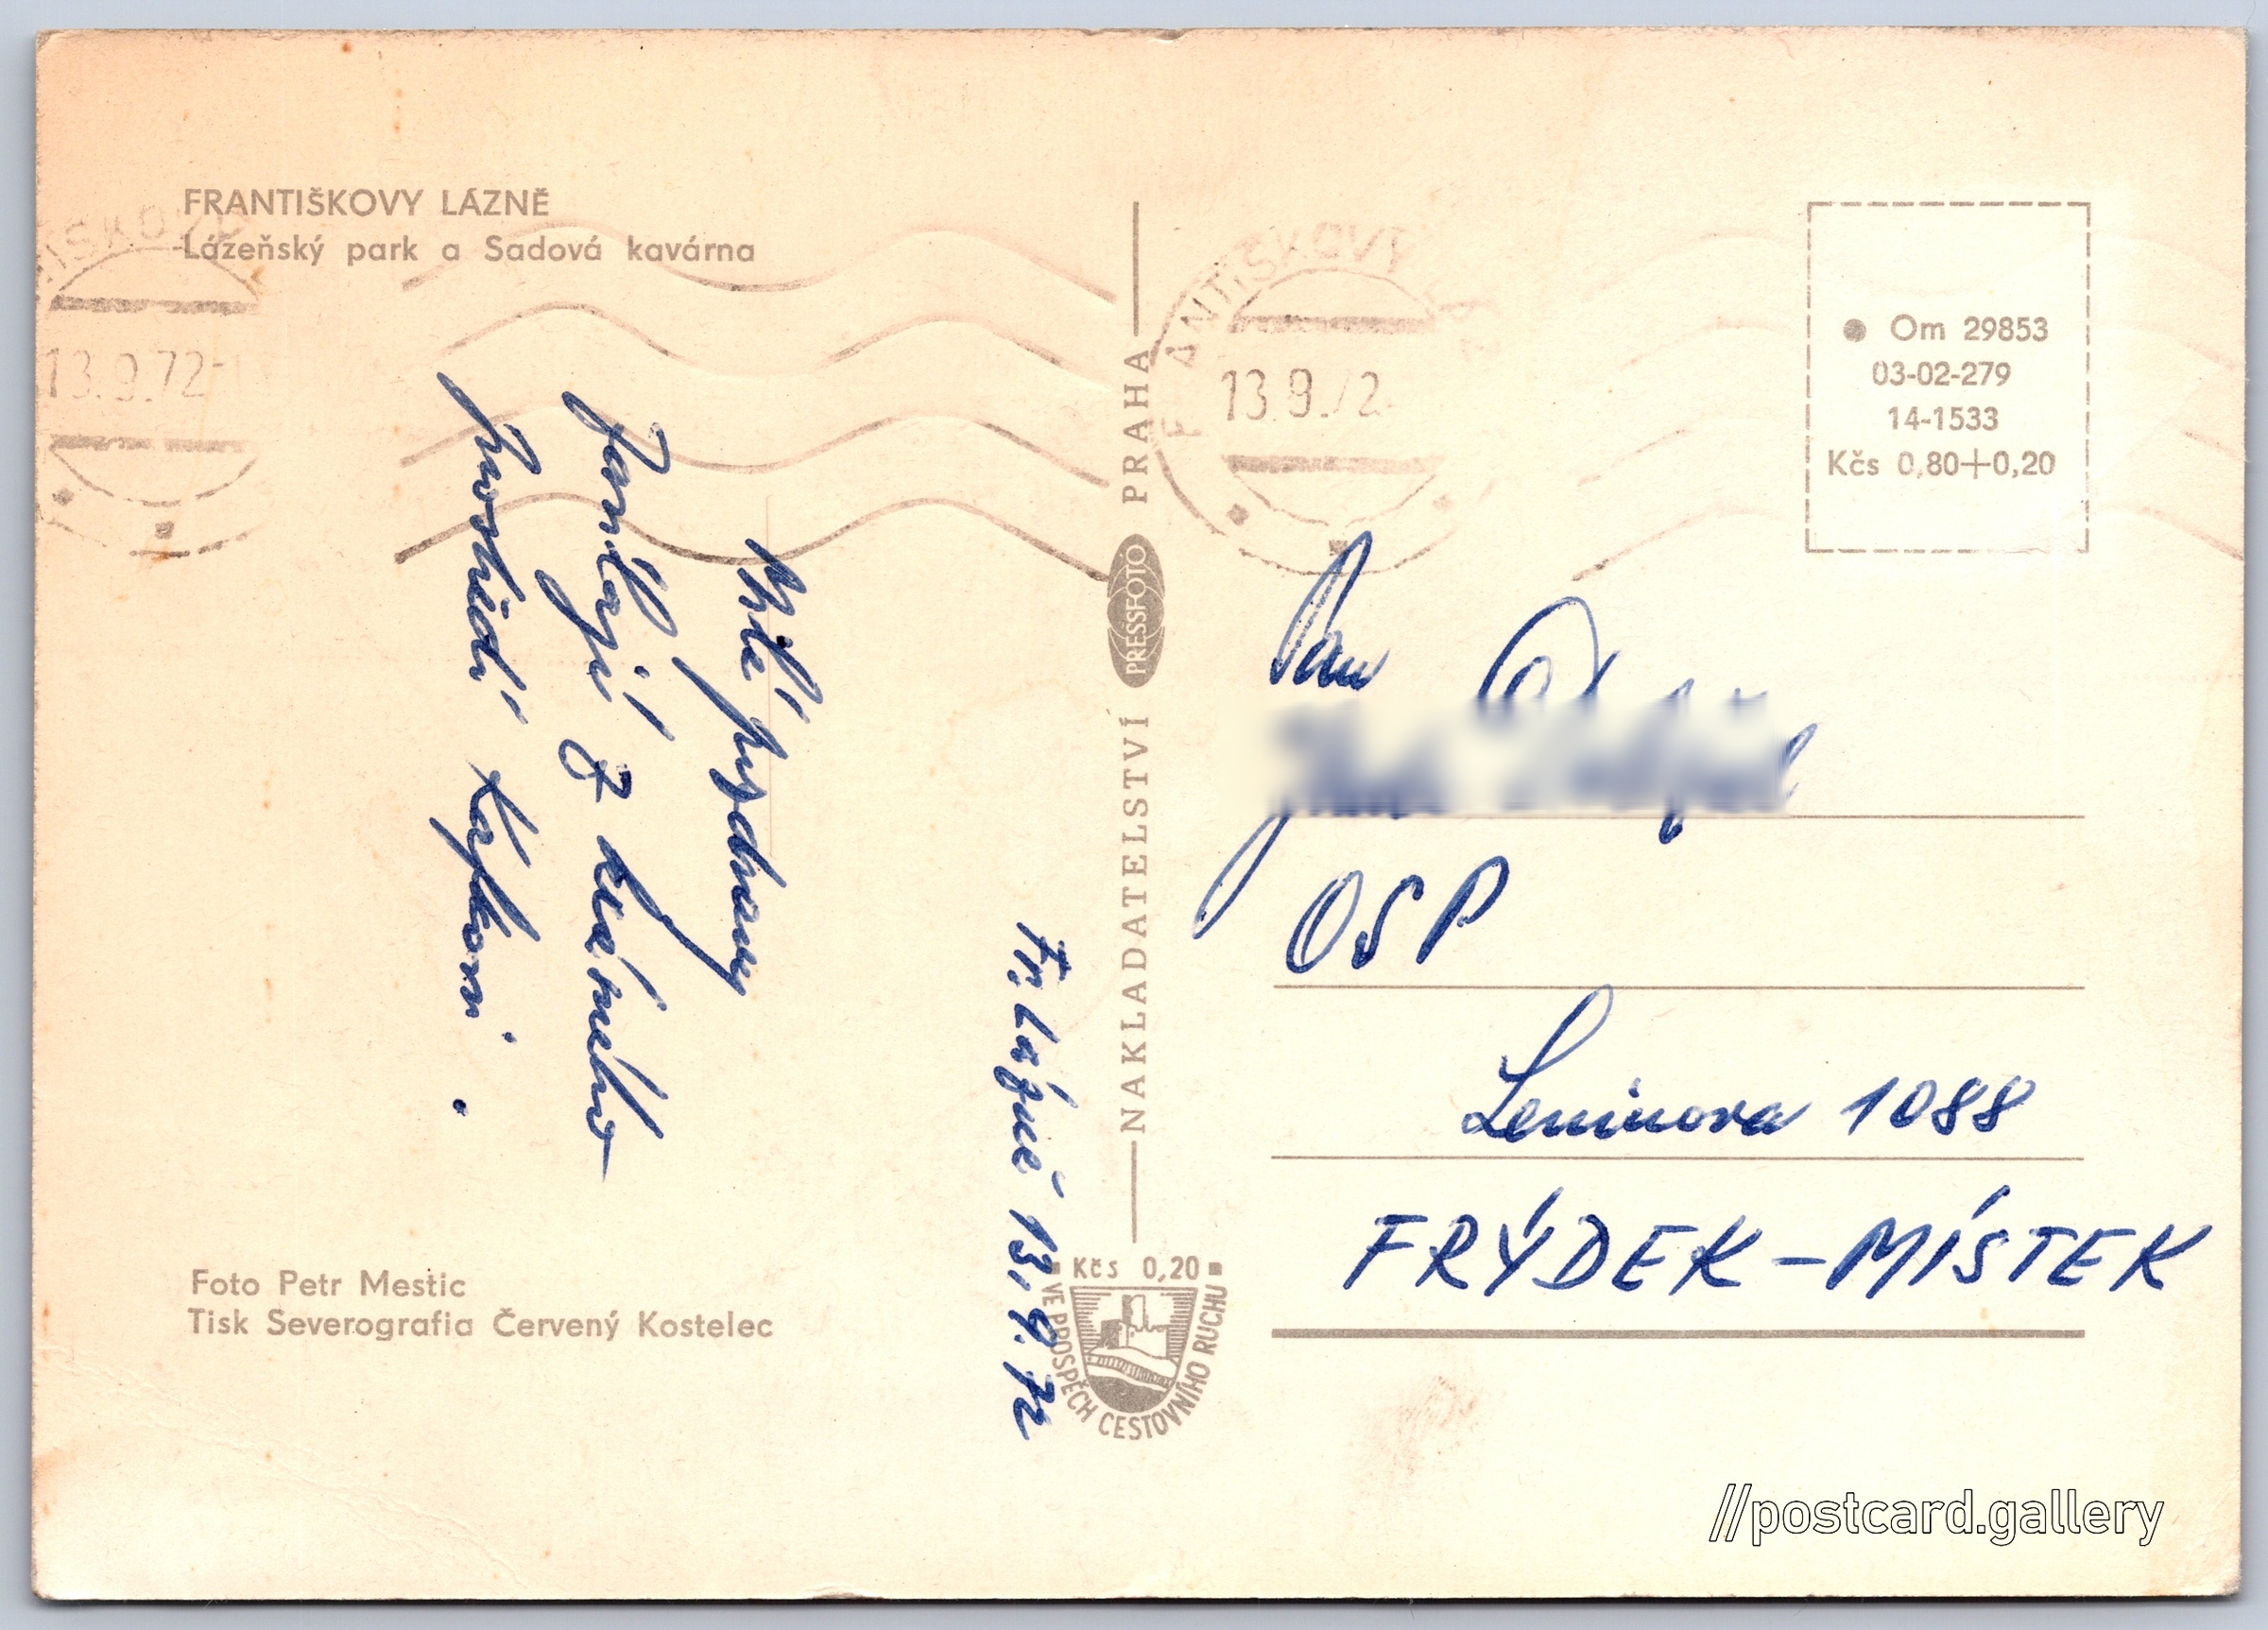 FRANTIŠKOVY LÁZNĚ
Lázeňský park a Sadová kavárna
13.9.72-
Fr. Lázně 13.9.72
Milé pozdravy
zasílají z krásného
prostředí
Foto Petr Mestic
Tisk Severografia Červený Kostelec
NAKLADATELSTVÍ PRESSFOTO PRAHA
Kčs 0,20
VE PROSPĚCH CESTOVNÍHO RUCHU
FRANTIŠKOVY LÁ
13.9.72-
Om 29853
03-02-279
14-1533
Kčs 0,80+0,20
Pan
OSP
Leninova 1088
FRÝDEK-MÍSTEK
//postcard.gallery